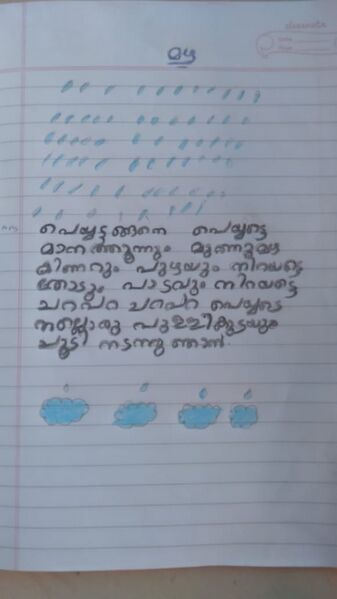 classmate
Date
Page
മഴ
പെയ്യട്ടങ്ങനെ പെയ്യട്ടെ
മാനത്തൂന്നും
കിണറും പുഴയും നിറയട്ടെ
തോടും പാടവും നിറയട്ടെ
ചറപറ ചറപറ പെയ്യട്ടെ
നല്ലൊരു പുള്ളിക്കുടയും
ചൂടി നടന്നു ഞാൻ.